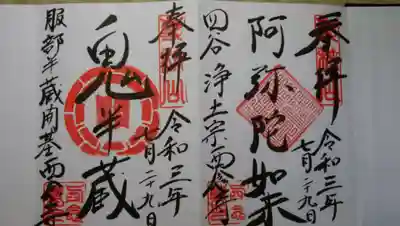 奉拝
阿弥陀如来
令和三年
七月二十九日
四谷 浄土宗西念寺
奉拝
鬼半蔵
令和三年
七月二十九日
服部半蔵開基西念寺